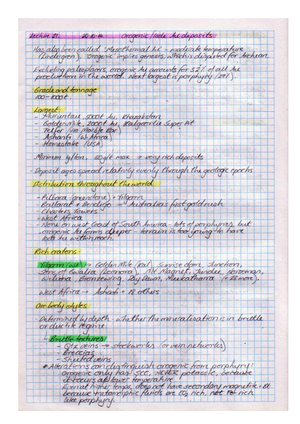 Lecture 21. 20.10.14 Orogenic / lode Au deposits
Has also been called 'Mesothermal Au' - moderate temperature
(Lindgren). Orogenic implies genesis, which is disputed for Archean.
Excluding paleoplacers, orogenic Au accounts for 52% of all Au
production in the world. Next largest is porphyry
Grade and tonnage
Largest:
- Muruntau 5000t Au, Kazakhstan
- Golden mile, 2000t Au, Kalgoorlie Super Pit
- Telfer
- Ashanti (W Africa)
- Homestake (USA)
Minimum 1g/ton, max → very rich deposits
Deposit ages spread relatively evenly through the geologic epochs
Distribution throughout the world
- Pilbara (greenstone) + Yilgarn
- Ballarat + Bendigo → Australia's first gold rush
- Charters Towers
- West Africa
- None on West Coast of South America - lots of porphyries, but
orogenic Au forms deeper - terrain is too young to have
Rich craters
- Yilgarn → Golden Mile (Kal), Sunrise Dam, Junction,
Sons of Gwalia (Leonora), Mt Magnet, Jundee, Norseman,
Wiluna, Bronzewing, Meekatharra
West Africa → Ashanti + 18 others
Ore body styles
Determined by depth - whether the mineralisation is in brittle
or ductile regime
- Brittle textures
- Qtz veins → stockworks (or vein networks)
- Breccias
- Sheeted veins
* Alterations can distinguish orogenic from porphyry!
Orogenic only has NEVER potassic, because
it occurs at lower temperature.
Even at higher temps, does not have secondary magnetite + Bt
because metamorphic fluids are rich, not
like porphyry.